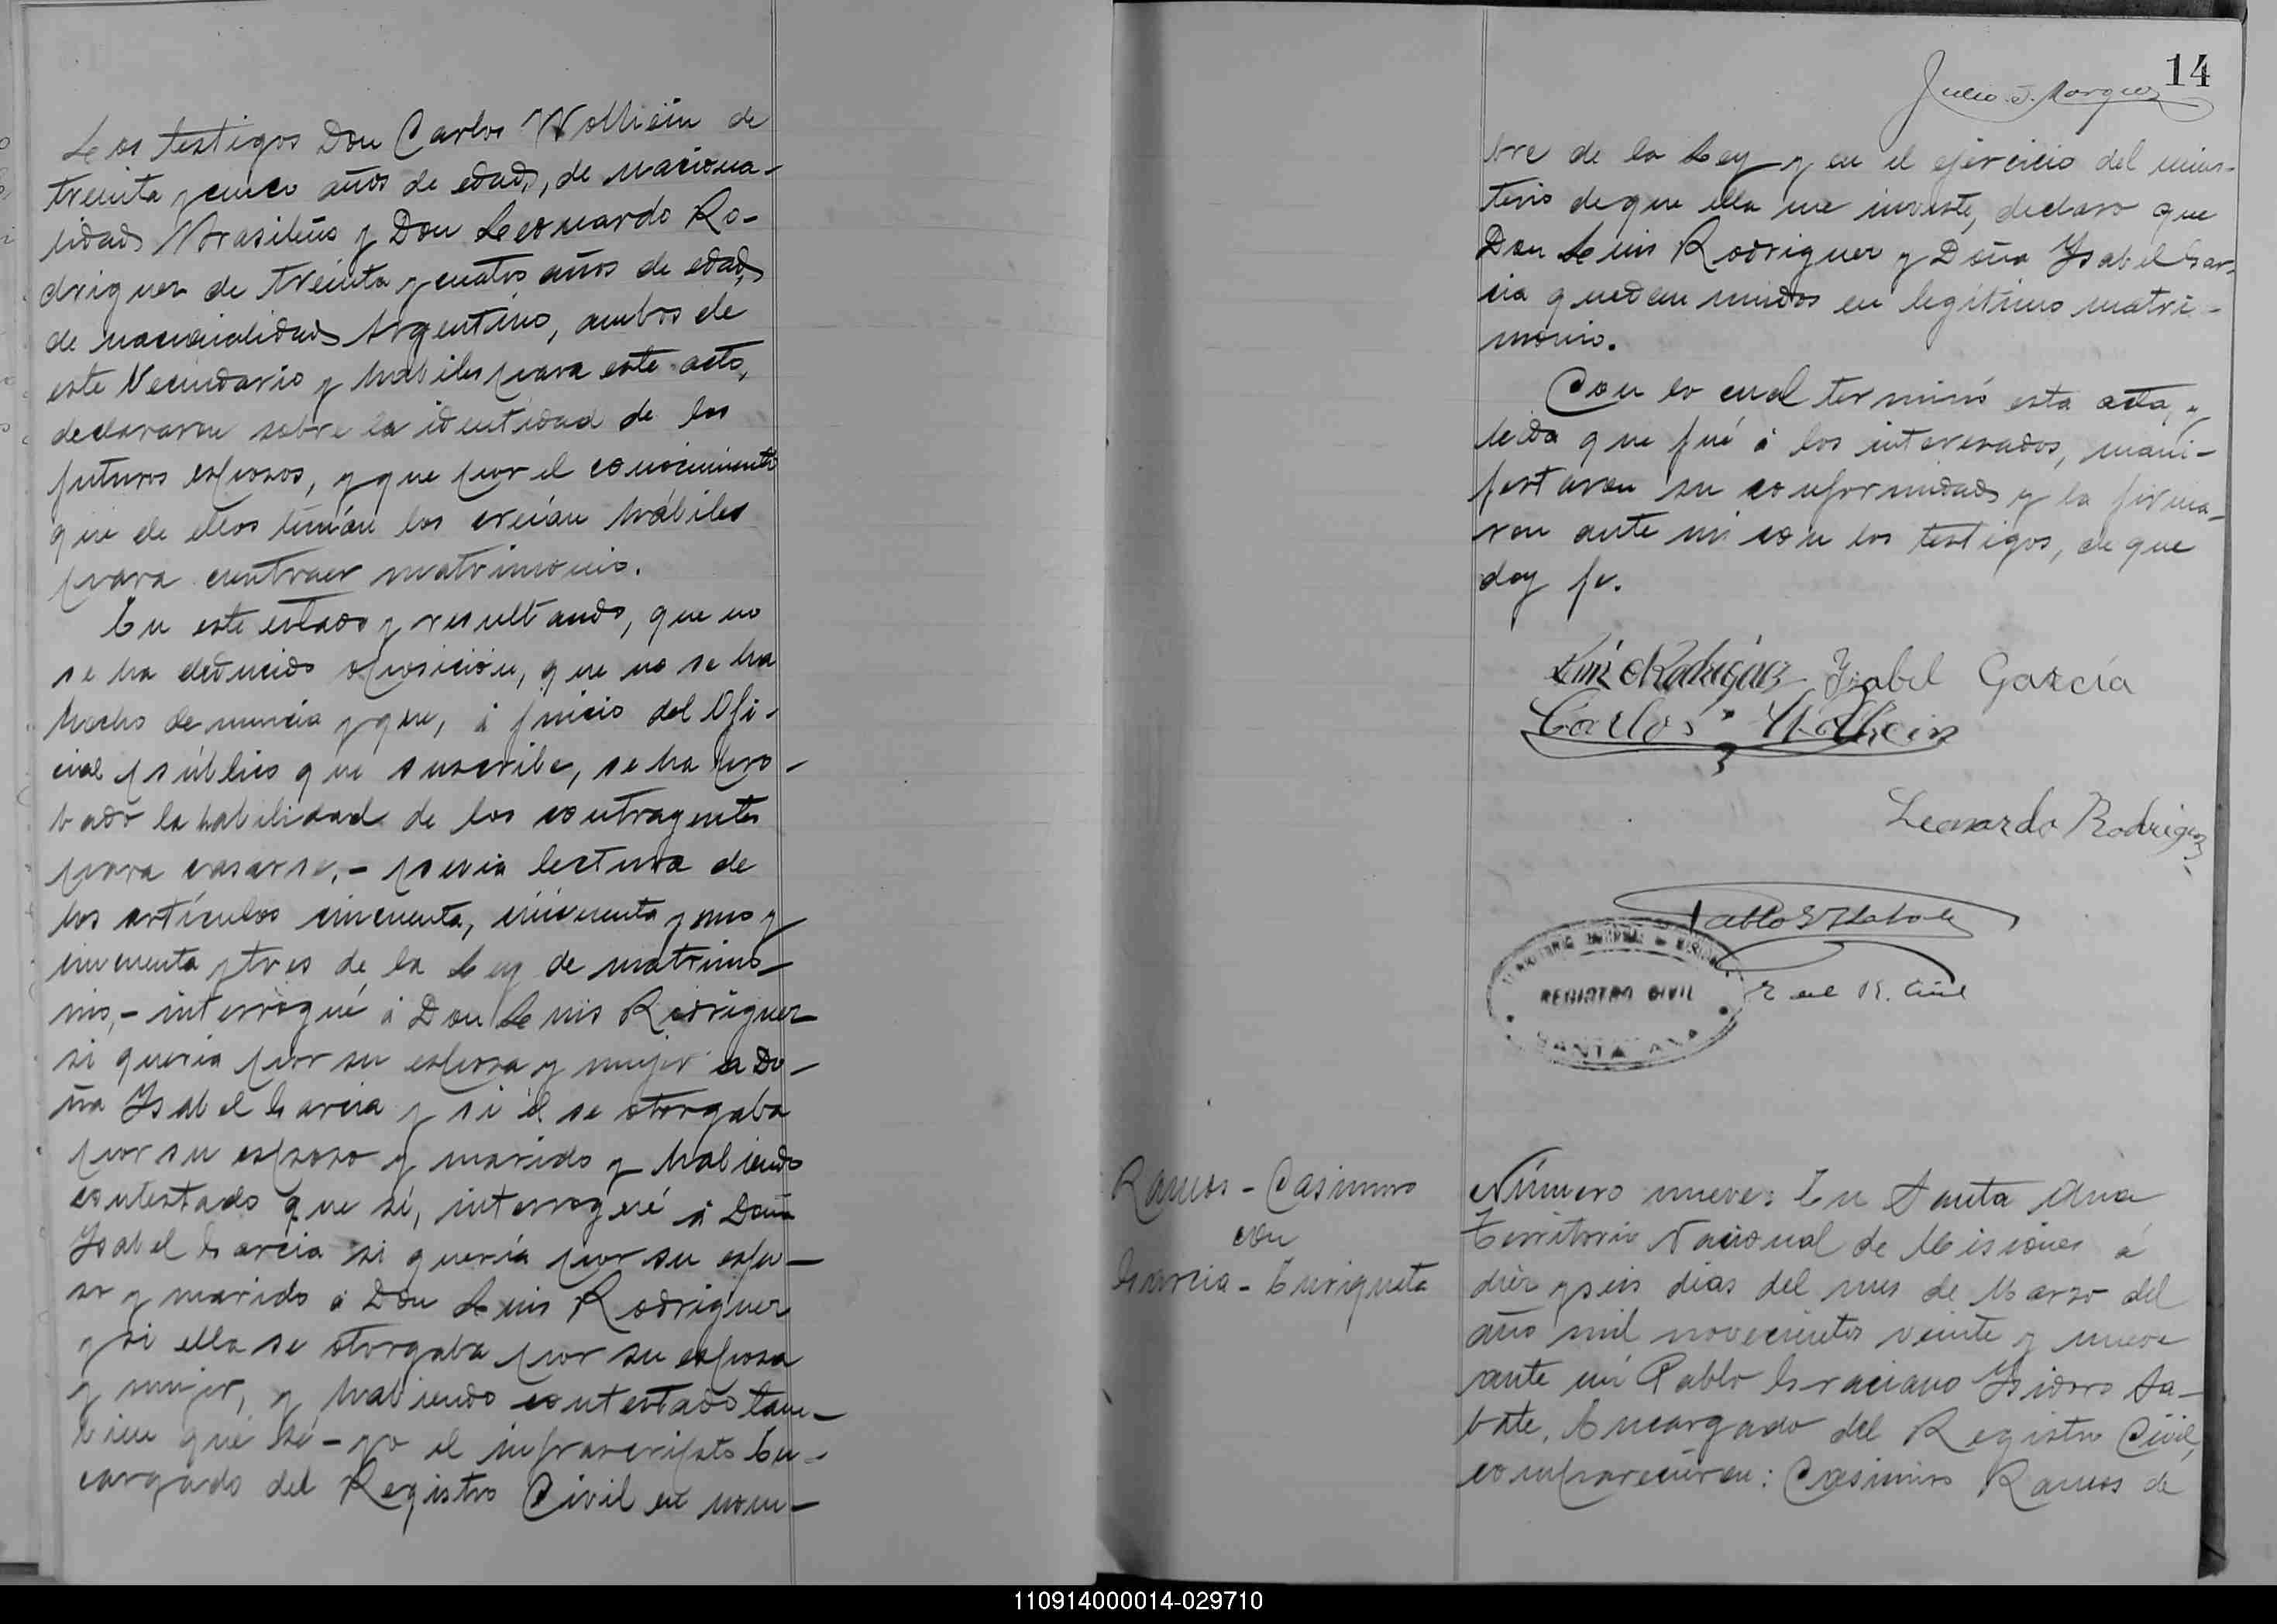 Los testigos Don Carlos Wolhein de
treinta y cinco años de edad, de naciona-
lidad Brasileño y Don Leonardo Ro-
driguez de treinta y cuatro años de edad,
de nacionalidad Argentino, ambos de
este Vecindario y habiles para este acto,
declararon sobre la identidad de los
futuros esposos, y que por el conocimiento
que de ellos tenían los creían hábiles
para contraer matrimonio.
En este estado y resultando, que no
se ha deducido oposición, que no se ha
hecho denuncia y que, á juicio del Ofi-
cial público que suscribe, se ha pro-
bado la habilidad de los contrayentes
para casarse,- previa lectura de
los artículos cincuenta, cincuenta y uno y
cincuenta y tres de la Ley de matrimo-
nio,- interrogué á Don Luis Rodriguez
si quería por su esposa y mujer a Do-
ña Ysabel Garcia y si él se otorgaba
por su esposo y marido y habiendo
contestado que sí, interrogué á Doña
Ysabel Garcia si quería por su espo-
so y marido á Don Luis Rodriguez
y si ella se otorgaba por su esposa
y mujer, y habiendo contestado tam-
bien que sí- yo el infrascripto En-
cargado del Registro Civil en nom-
14
Julio J. Marquez
bre de la Ley y en el ejercicio del minis-
terio de que ella me inviste, declaro que
Don Luis Rodriguez y Doña Ysabel Gar-
cia quedan unidos en legítimo matri-
monio.
Con lo cual terminó esta acta, y
leida que fué á los interesados, mani-
festaron su conformidad y la firma-
ron ante mi con los testigos, de que
doy fe.
Luis Rodriguez Ysabel García
Carlos Wolhein
Leonardo Rodriguez
Pablo G Y Sabate
E del R. Civil
TERRITORIO NACIONAL DE MISIONES
REGISTRO CIVIL
SANTA ANA
Ramos - Casimiro
con
Garcia - Enriqueta
Número nueve: En Santa Ana
Territorio Nacional de Misiones á
diez y seis dias del mes de Marzo del
año mil novecientos veinte y nueve
ante mí Pablo Graciano Ysidoro Sa-
bate, Encargado del Registro Civil,
comparecieron: Casimiro Ramos de
110914000014-029710